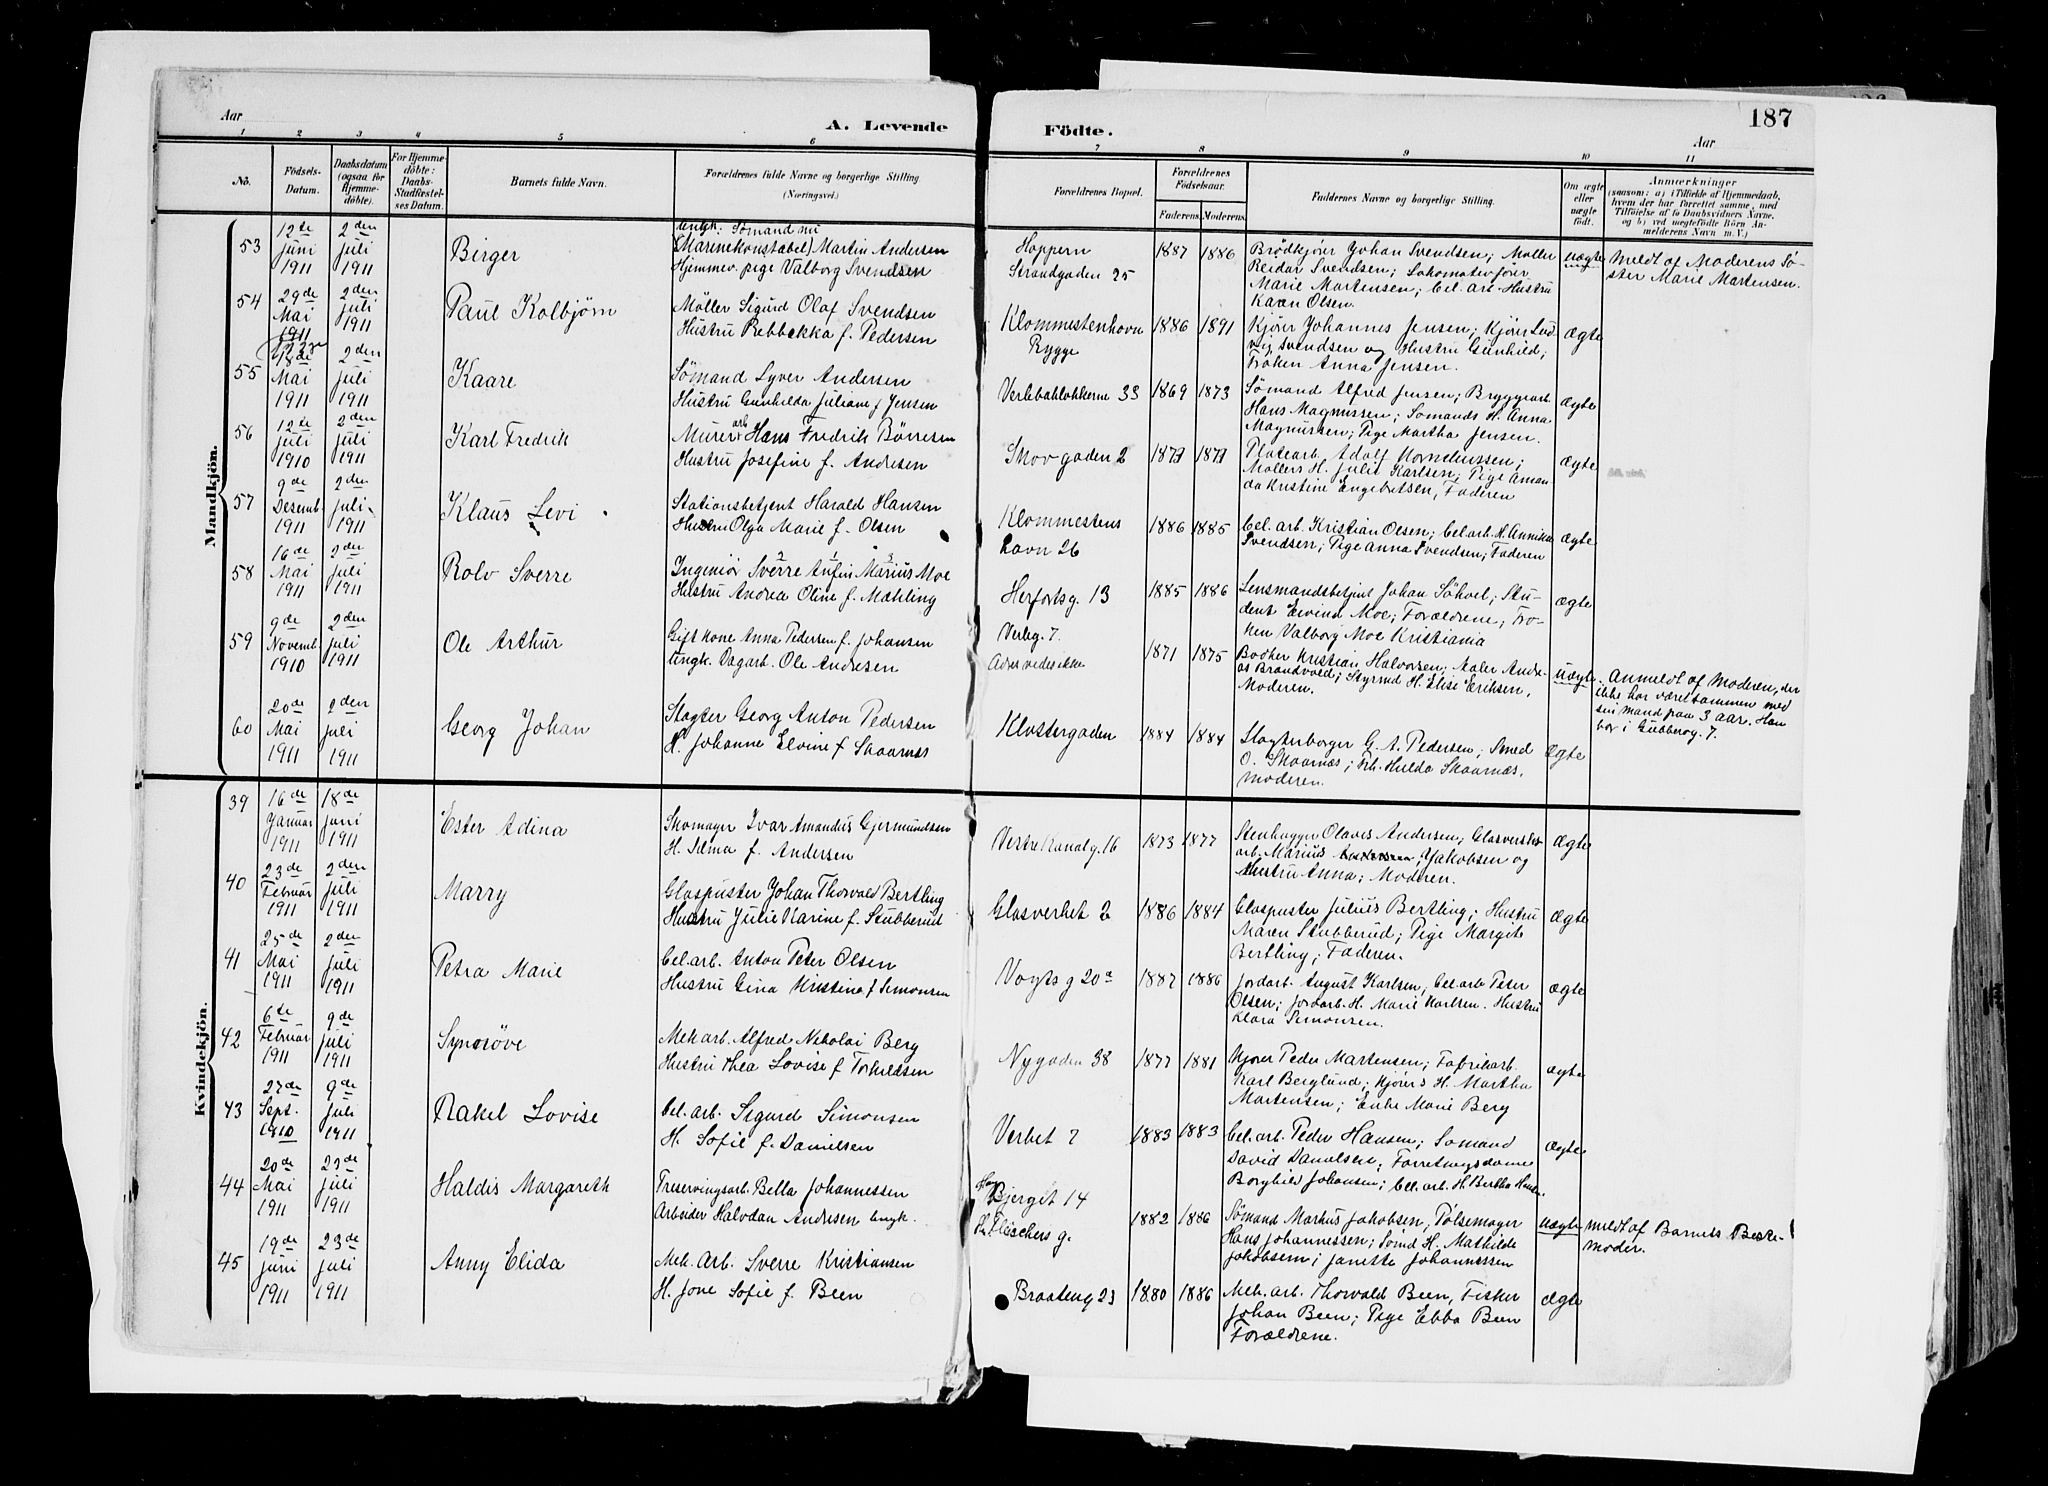 187
Aar
A. Levende
Födte.
Aar
1 2 3 4 5 6 7 8 9 10 11
No.
Födsels-
Datum.
Daabsdatum
(ogsaa for
Hjemme-
döbte).
For Hjemme-
döbte:
Daabs-
Stadfæstel-
ses Datum.
Barnets fulde Navn.
Forældrenes fulde Navne og borgerlige Stilling
(Næringsvei.)
Forældrenes Bopæl.
Forældrenes
Födselsaar.
Faderens Moderens
Faddernes Navne og borgerlige Stilling.
Om ægte
eller
uægte
födt.
Anmærkninger
(saasom: a) i Tilfælde af Hjemmedaab,
hvem der har forrettet samme, med
Tilföielse af to Daabsvidners Navne,
og b) ved uægtefödte Börn An-
melderens Navn m. V.)
Mandkjön.
53
12te
Juni
1911
2den
Juli
1911
Birger
Ungk. Sømand nu
(Marinekonstabel) Martin Andersen
Hjemmev. pige Valborg Svendsen
Hoppern
Strandgaden 25
1887 1886
Brödkjörer Johan Svendsen; Møller
Reidar Svendsen; Lokomotivförer
Marie Martensen; Cel. arb. Hustru
Karen Olsen.
uægte
Meldt af Moderens Sø-
ster Marie Martensen.
54
29de
Mai
1911
2den
Juli
1911
Paul Kolbjørn
Møller Sigurd Olaf Svendsen
Hustru Rebbekka f. Pedersen
Klommestenhovn
Rygge
1886 1891
Kjörer Johannes Jensen; Kjörer Lud
vig Svendsen og Hustru Gunhild;
Fröken Anna Jensen.
ægte
55
18de
Mai
1911
2den
Juli
1911
Kaare
Sømand Syver Andersen
Hustru Gunhilda Juliane f Jensen
Verlebakløkkerne 33
1869 1873
Sømand Alfred Jensen; Bryggearb
Hans Magnussen; Sømands H. Anna
Magnussen; Pige Martha Jensen.
ægte
56
12te
Juli
1910
2den
Juli
1911
Karl Fredrik
Murerarb Hans Fredrik Börresen
Hustru Josefine f. Andresen
Skovgaden 2
1877 1877
Platearb. Adolf
Møllers H. Julie Karlsen; Pige Aman-
da Kristine Engebretsen, Faderen
ægte
57
9de
Desemb.
1911
2den
Juli
1911
Klaus Levi
Stationsbetjent Harald Hansen
Hustru Olga Marie f. Olsen
Klommestens
havn 26
1886 1885
Cel. arb. Kristian Olsen; Cel. arb. H. Annika
Svendsen; Pige Anna Svendsen; Faderen
ægte
58
16de
Mai
1911
2den
Juli
1911
Rolv Sverre
Ingeniör Sverre Marius Moe
Hustru Andrea Oline f. Mæhling
Herfordsg. 13
1885 1886
Lensmandsbetjent Johan Söhoel; Stu-
dent Eivind Moe; Forældrene; Frö-
ken Valborg Moe Kristiania
ægte
59
9de
Novemb.
1910
2den
Juli
1911
Ole Arthur
Gift kone Anna Pedersen f. Johansen
Ungk. Dagarb. Ole Andresen
Verleg. 7.
Adr. vedes ikke
1871 1875
Bødker Kristian Halvorsen; Maler Andre-
as Brandvold; Styrmd H. Elise Eriksen,
Moderen.
uægte
Anmeldt af Moderen, der
ikke har været sammen med
sin mand paa 3 aar. Han
bor i Gubberog. 7.
60
20de
Mai
1911
2den
Juli
1911
Georg Johan
Slagter Georg Anton Pedersen
H. Johanne Elvine f Skaarnes
Klostergaden
1884 1884
Slagterborger G. A. Pedersen; Smed
O. Skaarnæs; Frk. Hulda Skaarnæs,
Moderen.
ægte
Kvindekjön.
39
16de
Januar
1911
18de
Juni
1911
Ester Adina
Skomager Ivar Amandus Gjermundsen
H. Selma f. Andersen
Vestre Kanalg. 16
1873 1877
Stenhugger Olaves Andersen; Glasverks
arb. Marius Jakobsen og
Hustru Anna; Moderen.
ægte
40
23de
Februar
1911
2den
Juli
1911
Marry
Glaspuster Johan Thorvald Bertling
Hustru Julie Karine f. Stubberud
Glasverket 2
1886 1884
Glaspuster Julius Bertling; Hustru
Maren Stubberud; Pige Margit
Bertling; Faderen.
ægte
41
25de
Mai
1911
2den
Juli
1911
Petra Marie
Cel. arb. Anton Peter Olsen
Hustru Gina Kristina f Simonsen
Vogts g 20a
1887 1886
Jordarb. August Karlsen; Cel. arb. Peter
Olsen; Jordarb. H. Marie Karlsen. Hustru
Klara Simonsen.
ægte
42
6te
Februar
1911
9de
Juli
1911
Synnöve
Mek arb. Alfred Nikolai Berg
Hustru Thea Lovise f Torkildsen
Nygaden 38
1877 1881
Kjører Peder Martensen; Fabrikarb.
Karl Berglund; Kjörers H. Martha
Martensen; Enke Marie Berg
ægte
43
23de
Sept.
1910
9de
Juli
1911
Rakel Lovise
Cel. arb. Sigurd Simonsen
H. Sofie f. Danielsen
Verket 7
1883 1883
Cel. arb. Peder Hansen; Sømand
David Danielsen; Forretningsdame
Borghild Johansen; Cel. arb. H. Bertha Hansen.
ægte
44
20de
Mai
1911
23de
Juli
1911
Haldis Margareth
Preservingsarb. Bella Johannessen
Arbeider Halvdan Andresen ungk.
Bjerget 14
Fleischers g.
1882 1886
Sømand Markus Jakobsen, Pølsemager
Hans Johannessen; Sømd H. Mathilde
Jakobsen; Janette Johannessen
uægte
Meldt af Barnets Beste-
moder.
45
19de
Juni
1911
23de
Juli
1911
Anny Elida
Mek. Arb. Sverre Kristiansen
H. Jove Sofie f. Been
Braateng 23
1880 1886
Mek. arb. Thorvald Been, Fisker
Johan Been; Pige Ebba Been
Forældrene.
ægte